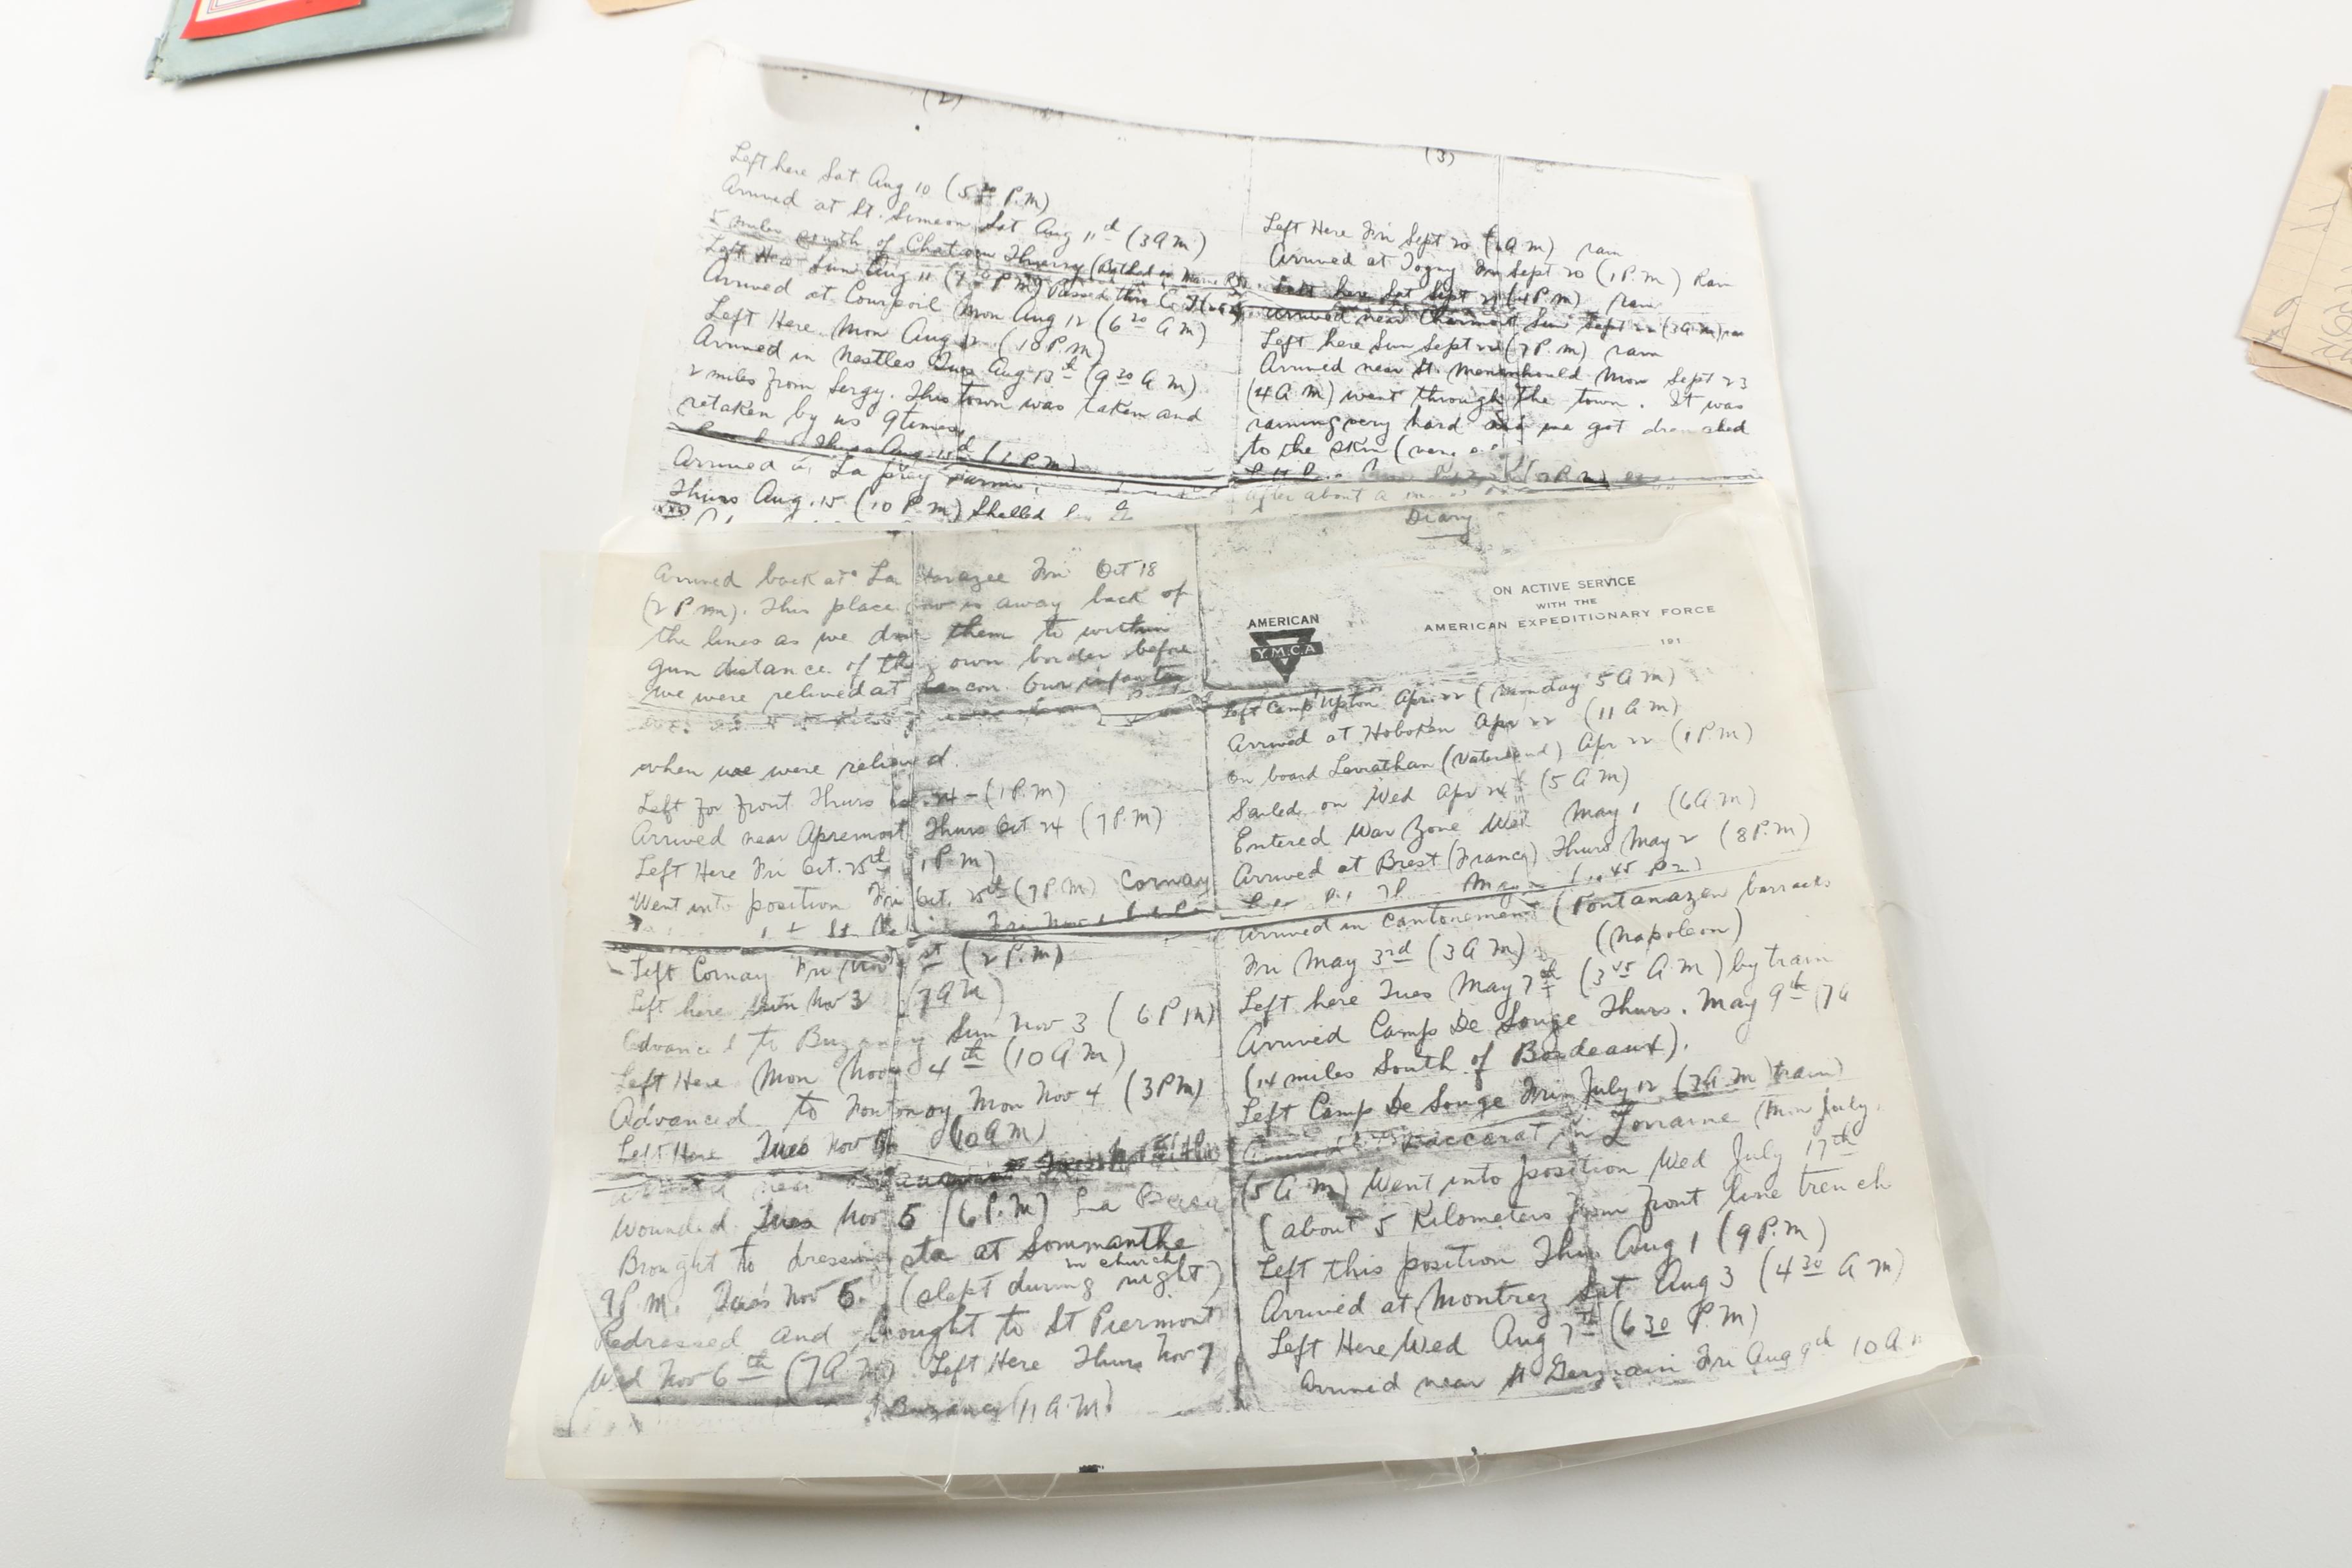 (2)
Left here Sat. Aug 10 (5 30 P.M)
Arrived at St. Simeon Sat Aug 11d (3 A M)
5 miles south of Chateau Thierry (Bathed in
Left Here Sun Aug 11 (7 P M) Passed thru
Arrived at Courpoil Mon Aug 12 (6 30 A M)
Left Here Mon Aug 12 (10 P.M)
Arrived in Nestles Tues Aug 13th (9 30 A M)
2 miles from Sergy. This town was taken and
retaken by us 9 times
Thurs Aug 15d (1 P.M)
Arrived in La
Thurs Aug. 15 (10 P.M) Shelled
(3)
Left Here Fri Sept 20 ( A M) rain
Arrived at Fri Sept 20 (1 P.M) Rain
Left here Sat Sept 21 (4 P.M) rain
Arrived near Sun Sept 22 (3 A.M) rain
Left here Sun Sept 22 (7 P.M) rain
Arrived near St. Menenhould Mon Sept 23
(4 A M) went through the town. It was
raining very hard and we got drenched
to the skin
after about a
Arrived back at La Harazee Fri Oct 18
(2 P.M). This place now is away back of
the lines as we them to within
gun distance of own border before
we were relieved at Our infantry
when we were relieved.
Left for front Thurs Oct. 24 - (1 P.M)
Arrived near Apremont Thurs Oct 24 (7 P.M)
Left Here Fri Oct. 25th (1 P.M)
Went into position Fri Oct. 25th (7 P.M) Cornay
Fri Nov 1
Left Cornay Fri Nov 1st (2 P.M)
Left here Sun Nov 3 (7 A M)
Advanced to Buzancy Sun Nov 3 (6 P M)
Left Here Mon Nov 4th (10 A M)
Advanced to Fontenoy Mon Nov 4 (3 PM)
Left Here Tues Nov (10 A M)
near
Wounded Tues Nov 5 (6 P.M) La
Brought to dressing sta at Sommanthe
in church
9 P.M. Tues Nov 5. (slept during night)
Redressed and brought to St Piermont
Wed Nov 6th (7 A.M). Left Here Thurs Nov 7
Buzancy (11 A.M)
Diary
AMERICAN
Y.M.C.A
ON ACTIVE SERVICE
WITH THE
AMERICAN EXPEDITIONARY FORCE
191
Left Camp Upton Apr. 22 (Monday 5 A M)
Arrived at Hoboken Apr 22 (11 A M)
On board Leviathan (Vaterland) Apr 22 (1 P.M)
Sailed on Wed Apr 24 (5 A M)
Entered War Zone Wed May 1 (6 A.M)
Arrived at Brest (France) Thurs May 2 (8 P.M)
Arrived in Cantonement (Pontanazen barracks
Fri May 3rd (3 A M) (Napoleon)
Left here Tues May 7th (3 45 A.M) by train
Arrived Camp De Souge Thurs. May 9th (7 A
(14 miles South of Bordeaux).
Left Camp De Souge Fri July 12 (7 A.M) train)
Baccarat in Lorraine (Mon July
(5 A M) Went into position Wed July 17th
(about 5 Kilometers from front line trench
Left this position Thu Aug 1 (9 P.M)
Arrived at Montrez Sat Aug 3 (4 30 A M)
Left Here Wed Aug 7th (6 30 P.M)
Arrived near St Germain Fri Aug 9d 10 A